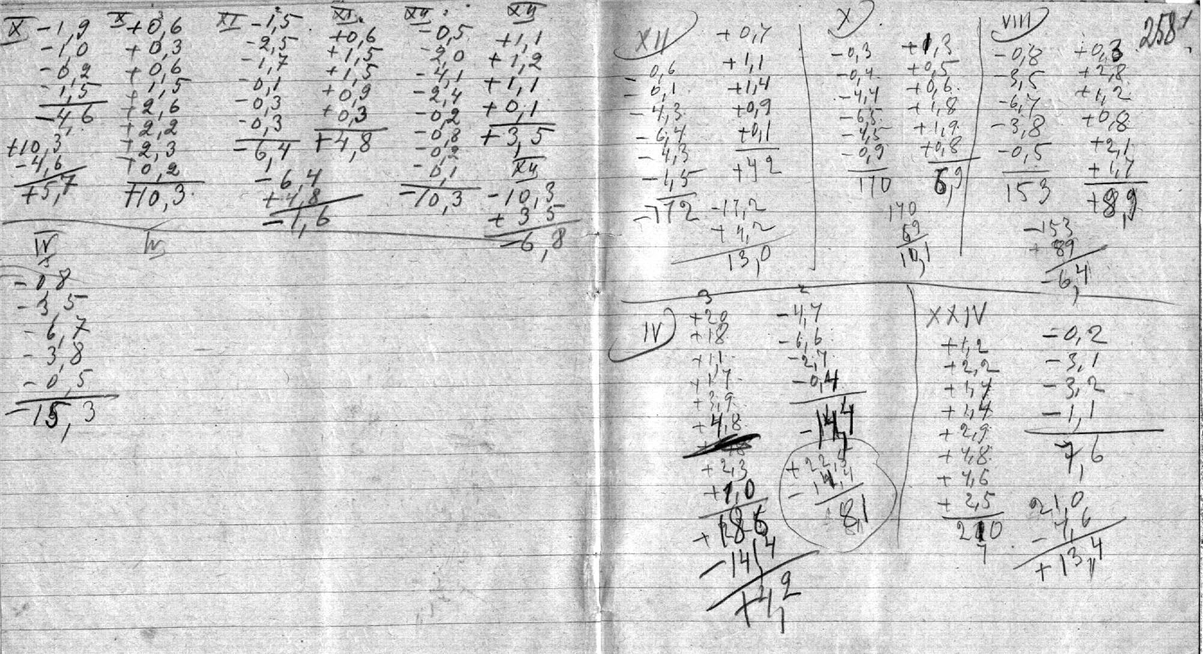 X
-1,9
-1,0
-0,2
-1,5
-4,6
+10,3
-4,6
+5,7
X
+0,6
+0,3
+0,6
+1,5
+2,6
+2,2
+2,3
+0,2
+10,3
XI
-1,5
-2,5
-1,7
-0,1
-0,3
-0,3
-6,4
-6,4
+4,8
-1,6
XI
+0,6
+1,5
+1,5
+0,9
+0,3
+4,8
XII
-0,5
-2,0
-4,1
-2,4
-0,2
-0,8
-0,2
-0,1
-10,3
XII
+1,1
+1,2
+1,1
+0,1
+3,5
XII
-10,3
+3,5
-6,8
IV
-0,8
-3,5
-6,7
-3,8
-0,5
-15,3
IV
258
XII
-0,6
-0,1
-4,3
-6,4
-4,3
-1,5
-172
+0,7
+1,1
+1,4
+0,9
+0,1
+42
-17,2
+4,2
13,0
X
-0,3
-0,4
-4,4
-6,5
-4,5
-0,9
170
+1,3
+0,5
+0,6
+1,8
+1,9
+0,8
6,9
170
69
10,1
VIII
-0,8
-3,5
-6,7
-3,8
-0,5
153
+0,3
+2,8
+1,2
+0,8
+2,1
+1,7
+8,9
-153
+89
-6,4
IV
3
+20
+18
+11
+1,7
+3,9
+4,8
+2,3
+1,0
+186
-14,4
+4,2
2
-4,7
-6,6
-2,7
-0,4
-14,4
+22,5
-14,4
8,1
XXIV
+1,2
+2,2
+1,4
+1,4
+2,9
+4,8
+4,6
+2,5
210
-0,2
-3,1
-3,2
-1,1
7,6
21,0
-7,6
+13,4